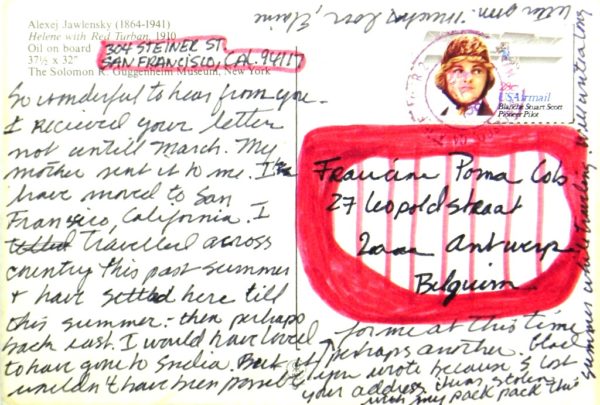 Alexej Jawlensky (1864-1941)
Helene with Red Turban, 1910
Oil on board
37½ x 32"
The Solomon R. Guggenheim Museum, New York
304 STEINER ST.
SAN FRANCISCO, CAL. 94117
So wonderful to hear from you.
I received your letter
not until March. My
mother sent it to me. I
have moved to San
Fransico, California. I
Travelled across
country this past summer
& have settled here till
this summer - then perhaps
back east. I would have loved
to have gone to India. But it
wouldn't have been possible
for me at this time
perhaps another. Glad
you wrote because I lost
your address it was stolen
with my pack pack this
summer while traveling. Will write a long
letter soon. Much Love, Elaine
USAirmail
Blanche Stuart Scott
Pioneer Pilot
Francine Poma Cob.
27 Leopoldstraat
2000 Antwerp
Belguim